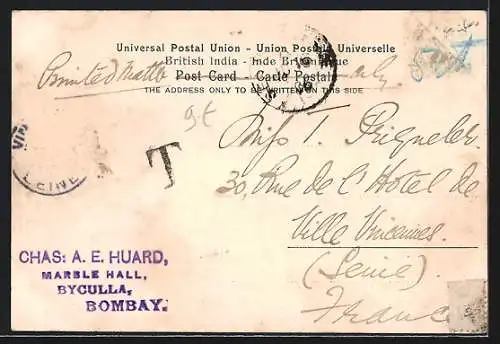 Universal Postal Union - Union Postale Universelle
British India - Inde Britannique
Printed Matter only
Post Card - Carte Postale
THE ADDRESS ONLY TO BE WRITTEN ON THIS SIDE
T
Miss I.
30, Rue de l'Hôtel de
Ville Vincennes.
(Seine)
France
SEINE
CHAS: A. E. HUARD,
MARBLE HALL,
BYCULLA,
BOMBAY.